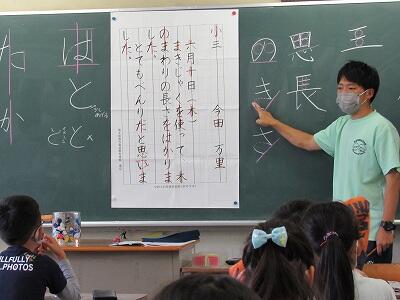 思長
のきさ
小三 今田 万里
六月十日（木）
まきじゃくを使って、木
のまわりの長さをはかりま
した。
とてもべんりだと思いま
した。
はと
たか
PHOTOS